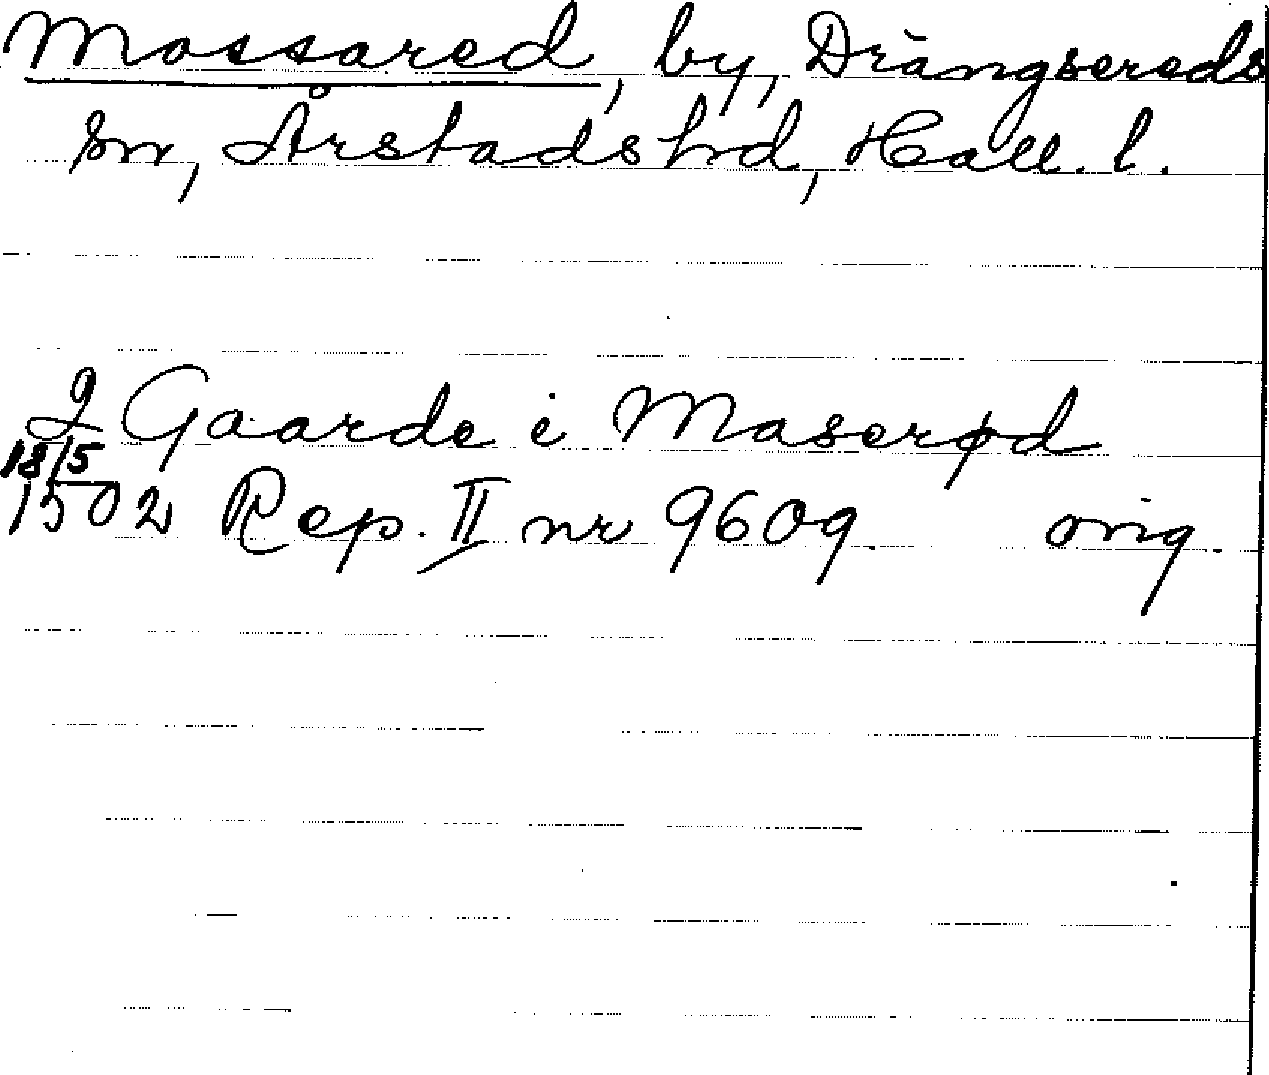 Mossared, by, Drängsereds
sn, Årstads hd, Hall. l.
2 Gaarde i Maserød
18/5
1502 Rep. II nr 9609. orig.